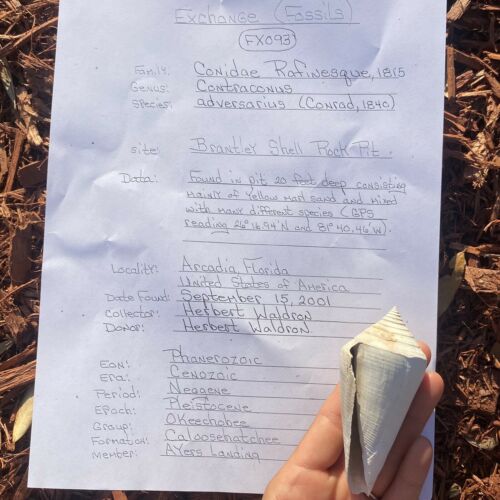 Exchange (Fossils)
FX093
Family: Conidae Rafinesque, 1815
Genus: Contraconus
Species: adversarius (Conrad, 1840)
Site: Brantley Shell Rock Pit
Data: Found in pit 20 feet deep consisting
mainly of yellow marl sand and mixed
with many different species (GPS
reading 26° 16.94'N and 81° 40.46'W).
Locality: Arcadia, Florida
United States of America
Date Found: September 15, 2001
Collector: Herbert Waldron
Donor: Herbert Waldron
Eon: Phanerozoic
Era: Cenozoic
Period: Neogene
Epoch: Pleistocene
Group: Okeechobee
Formation: Caloosahatchee
Member: Ayers Landing